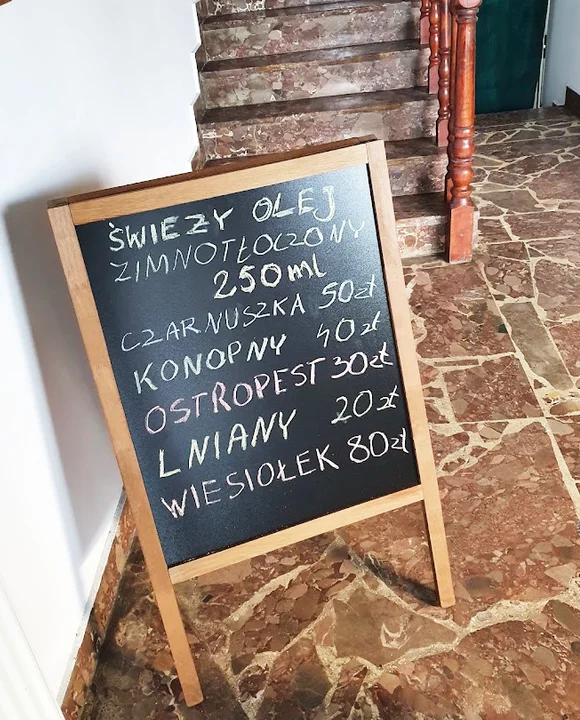 ŚWIEZY OLEJ
ZIMNOTŁOCZONY
250ml
CZARNUSZKA 50zł
KONOPNY 40zł
OSTROPEST 30zł
LNIANY 20zł
WIESIOŁEK 80zł